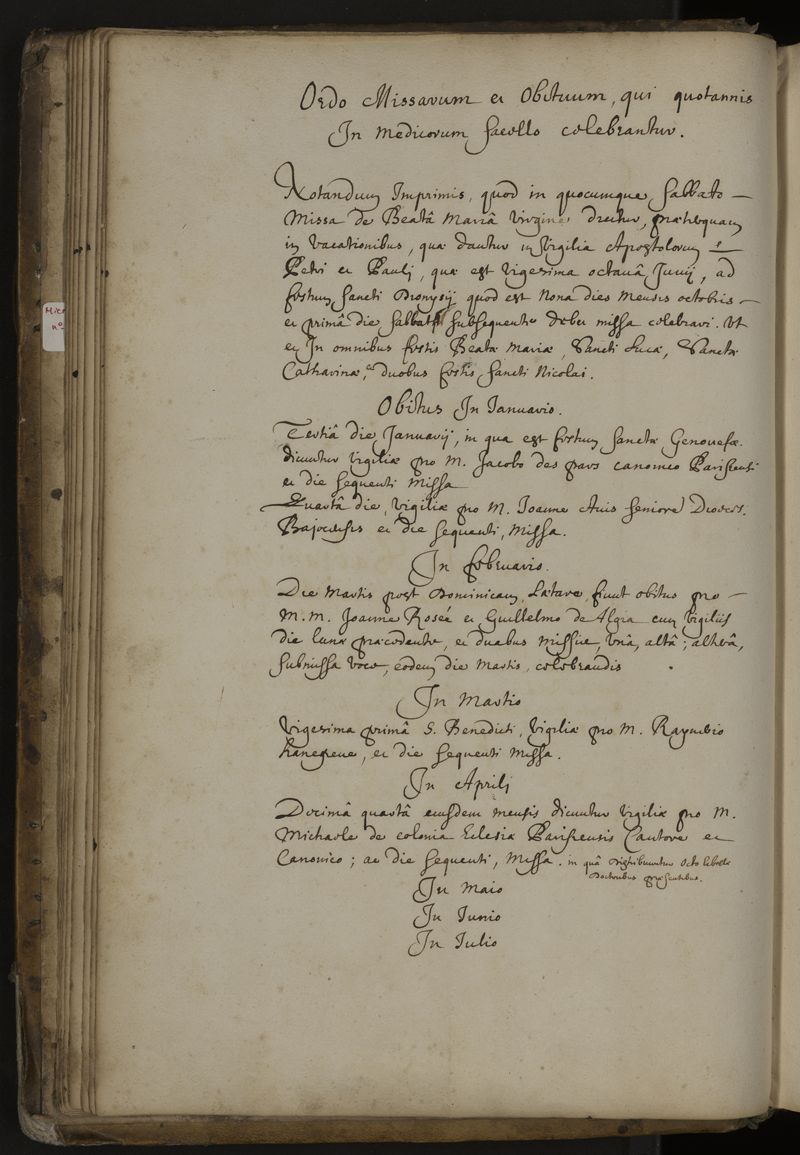 Ordo Missarum et Obituum, qui quotannis
In Medicorum sacello celebrantur.
Notandum Imprimis, quod in quocumque sabbato —
Missa de Beatâ Mariâ Virgine dicitur, præterquam
in vacationibus, quæ dantur in Vigilia Apostolorum s.
Petri et Pauli, quæ est vigesima octavâ Junij, ad
festum sancti Dionysij quod est Nona dies mensis octobris —
et primâ die sabbati subsequente debet missa celebrari. Ut
et In omnibus festis Beatæ Mariæ, Sancti Lucæ, Sanctæ
Catharinæ, et duobus festis sancti Nicolai.
Obitus In Ianuario.
Tertiâ die Januarij, in qua est festum sanctæ Genovefæ.
dicuntur vigiliæ pro M. Jacobo des pars canonico Parisiensi
et die sequenti Missa
Quartâ die, vigiliæ pro M. Ioanne Avis seniore Dioces.
Bajocensis et die sequenti, Missa.
In febvuario.
Die Martis post Dominicam, Lætare, fiunt obitus pro —
M. M. Joanne Roseé et Guillelmo de Algia cum vigiliis
die lunæ præcedente, et duabus missis, unâ, altâ; alterâ,
submissa voce, eodem die Martis, celebrandis.
In Martio
Vigesima primâ S. Benedicti, Vigiliæ pro M.
et die sequenti Missa.
In Aprili
Decimâ quartâ eiusdem mensis dicuntur vigiliæ pro M.
Michaele de colonia Eclesiæ Parisiensis Cantore et
Canonico; ac die sequenti, Missa. in quâ distribuuntur octo
Doctoribus præsentibus.
In Maio
In Iunio
In Iulio